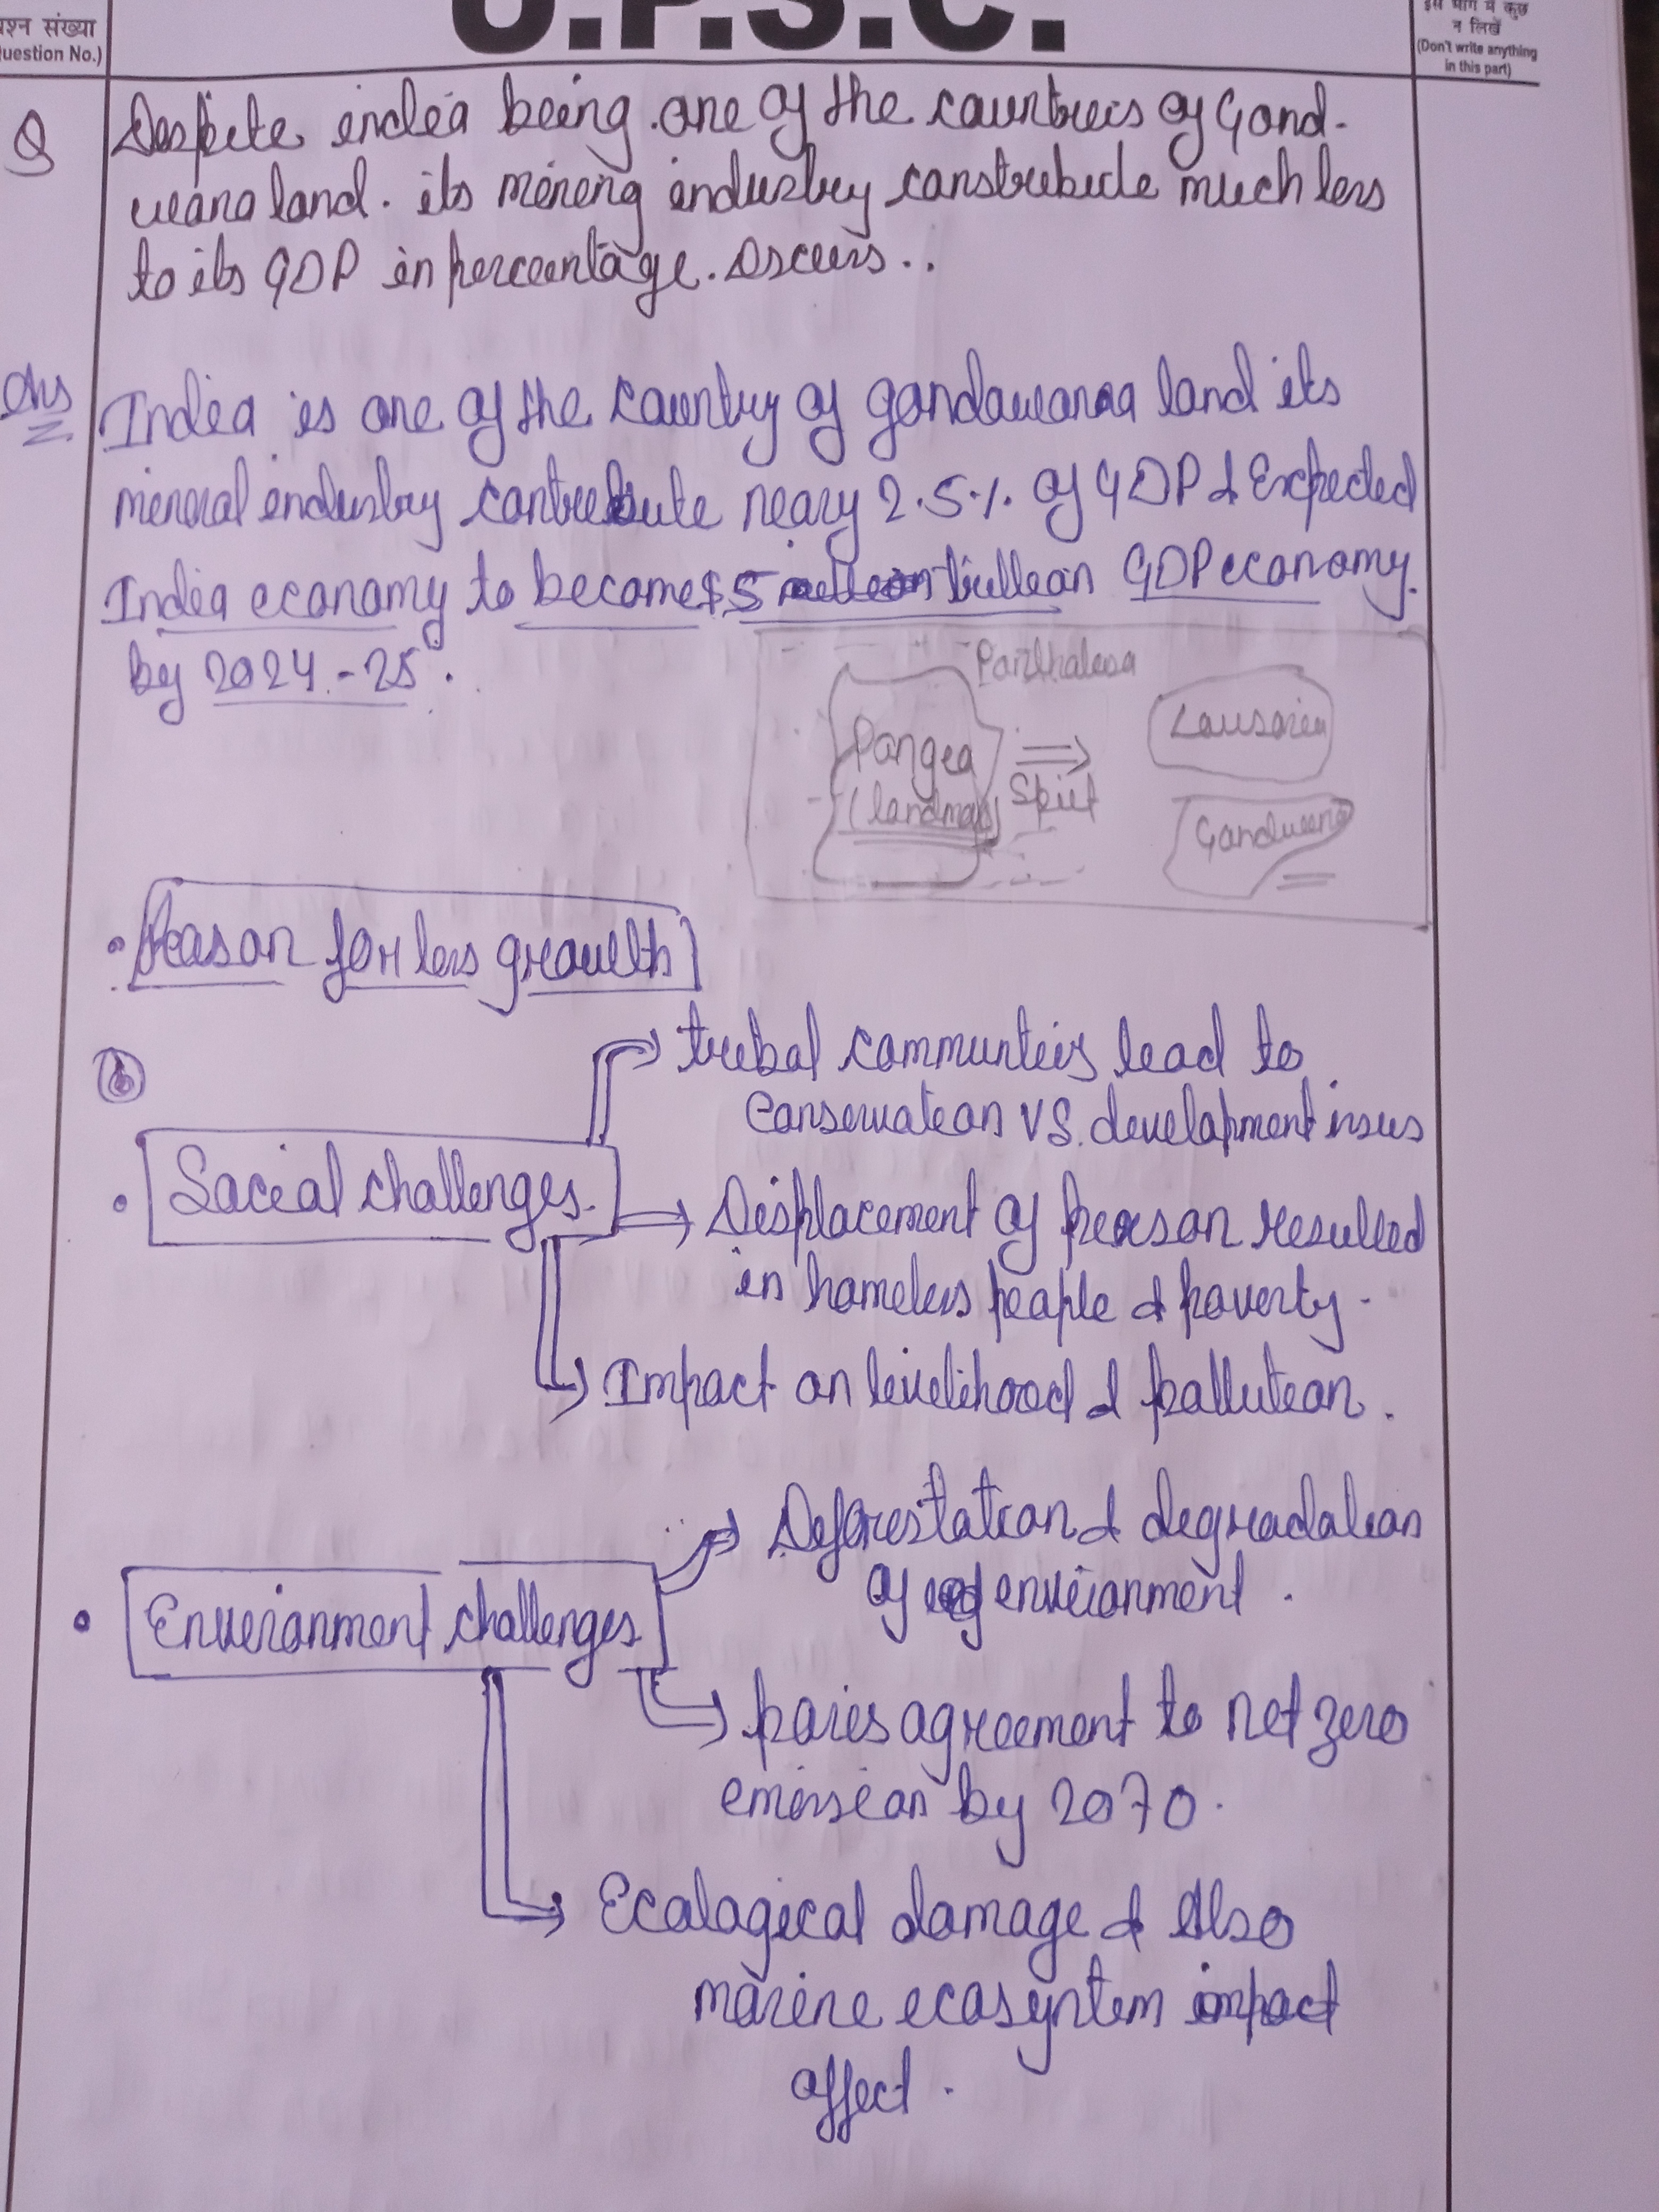 प्रश्न संख्या
(Question No.)
U.P.S.C.
इस भाग में कुछ
न लिखें
(Don't write anything
in this part)
Q
Despite india being one of the countries of Gond-
wana land. its mining industry constribute much less
to its GDP in percentage. Discuss..
Ans
India is one of the country of gondawana land its
mineral industry contribute neary 2.5% of GDP & Expected
India economy to become $5 trillion GDP economy.
by 2024-25.
Panthalasa
Pangea
(landmass)
Split
Laurasia
Gondwana
Reason for less growth
Social challenges
tribal communties lead to
Conservation VS. development issues
Displacement of person resulted
in homeless people & poverty.
Impact on livelihood & pollution.
Environment challenges
Deforestation & degradation
of environment.
paris agreement to net zero
emission by 2070.
Ecological damage & Also
marine ecosystem impact
affect.